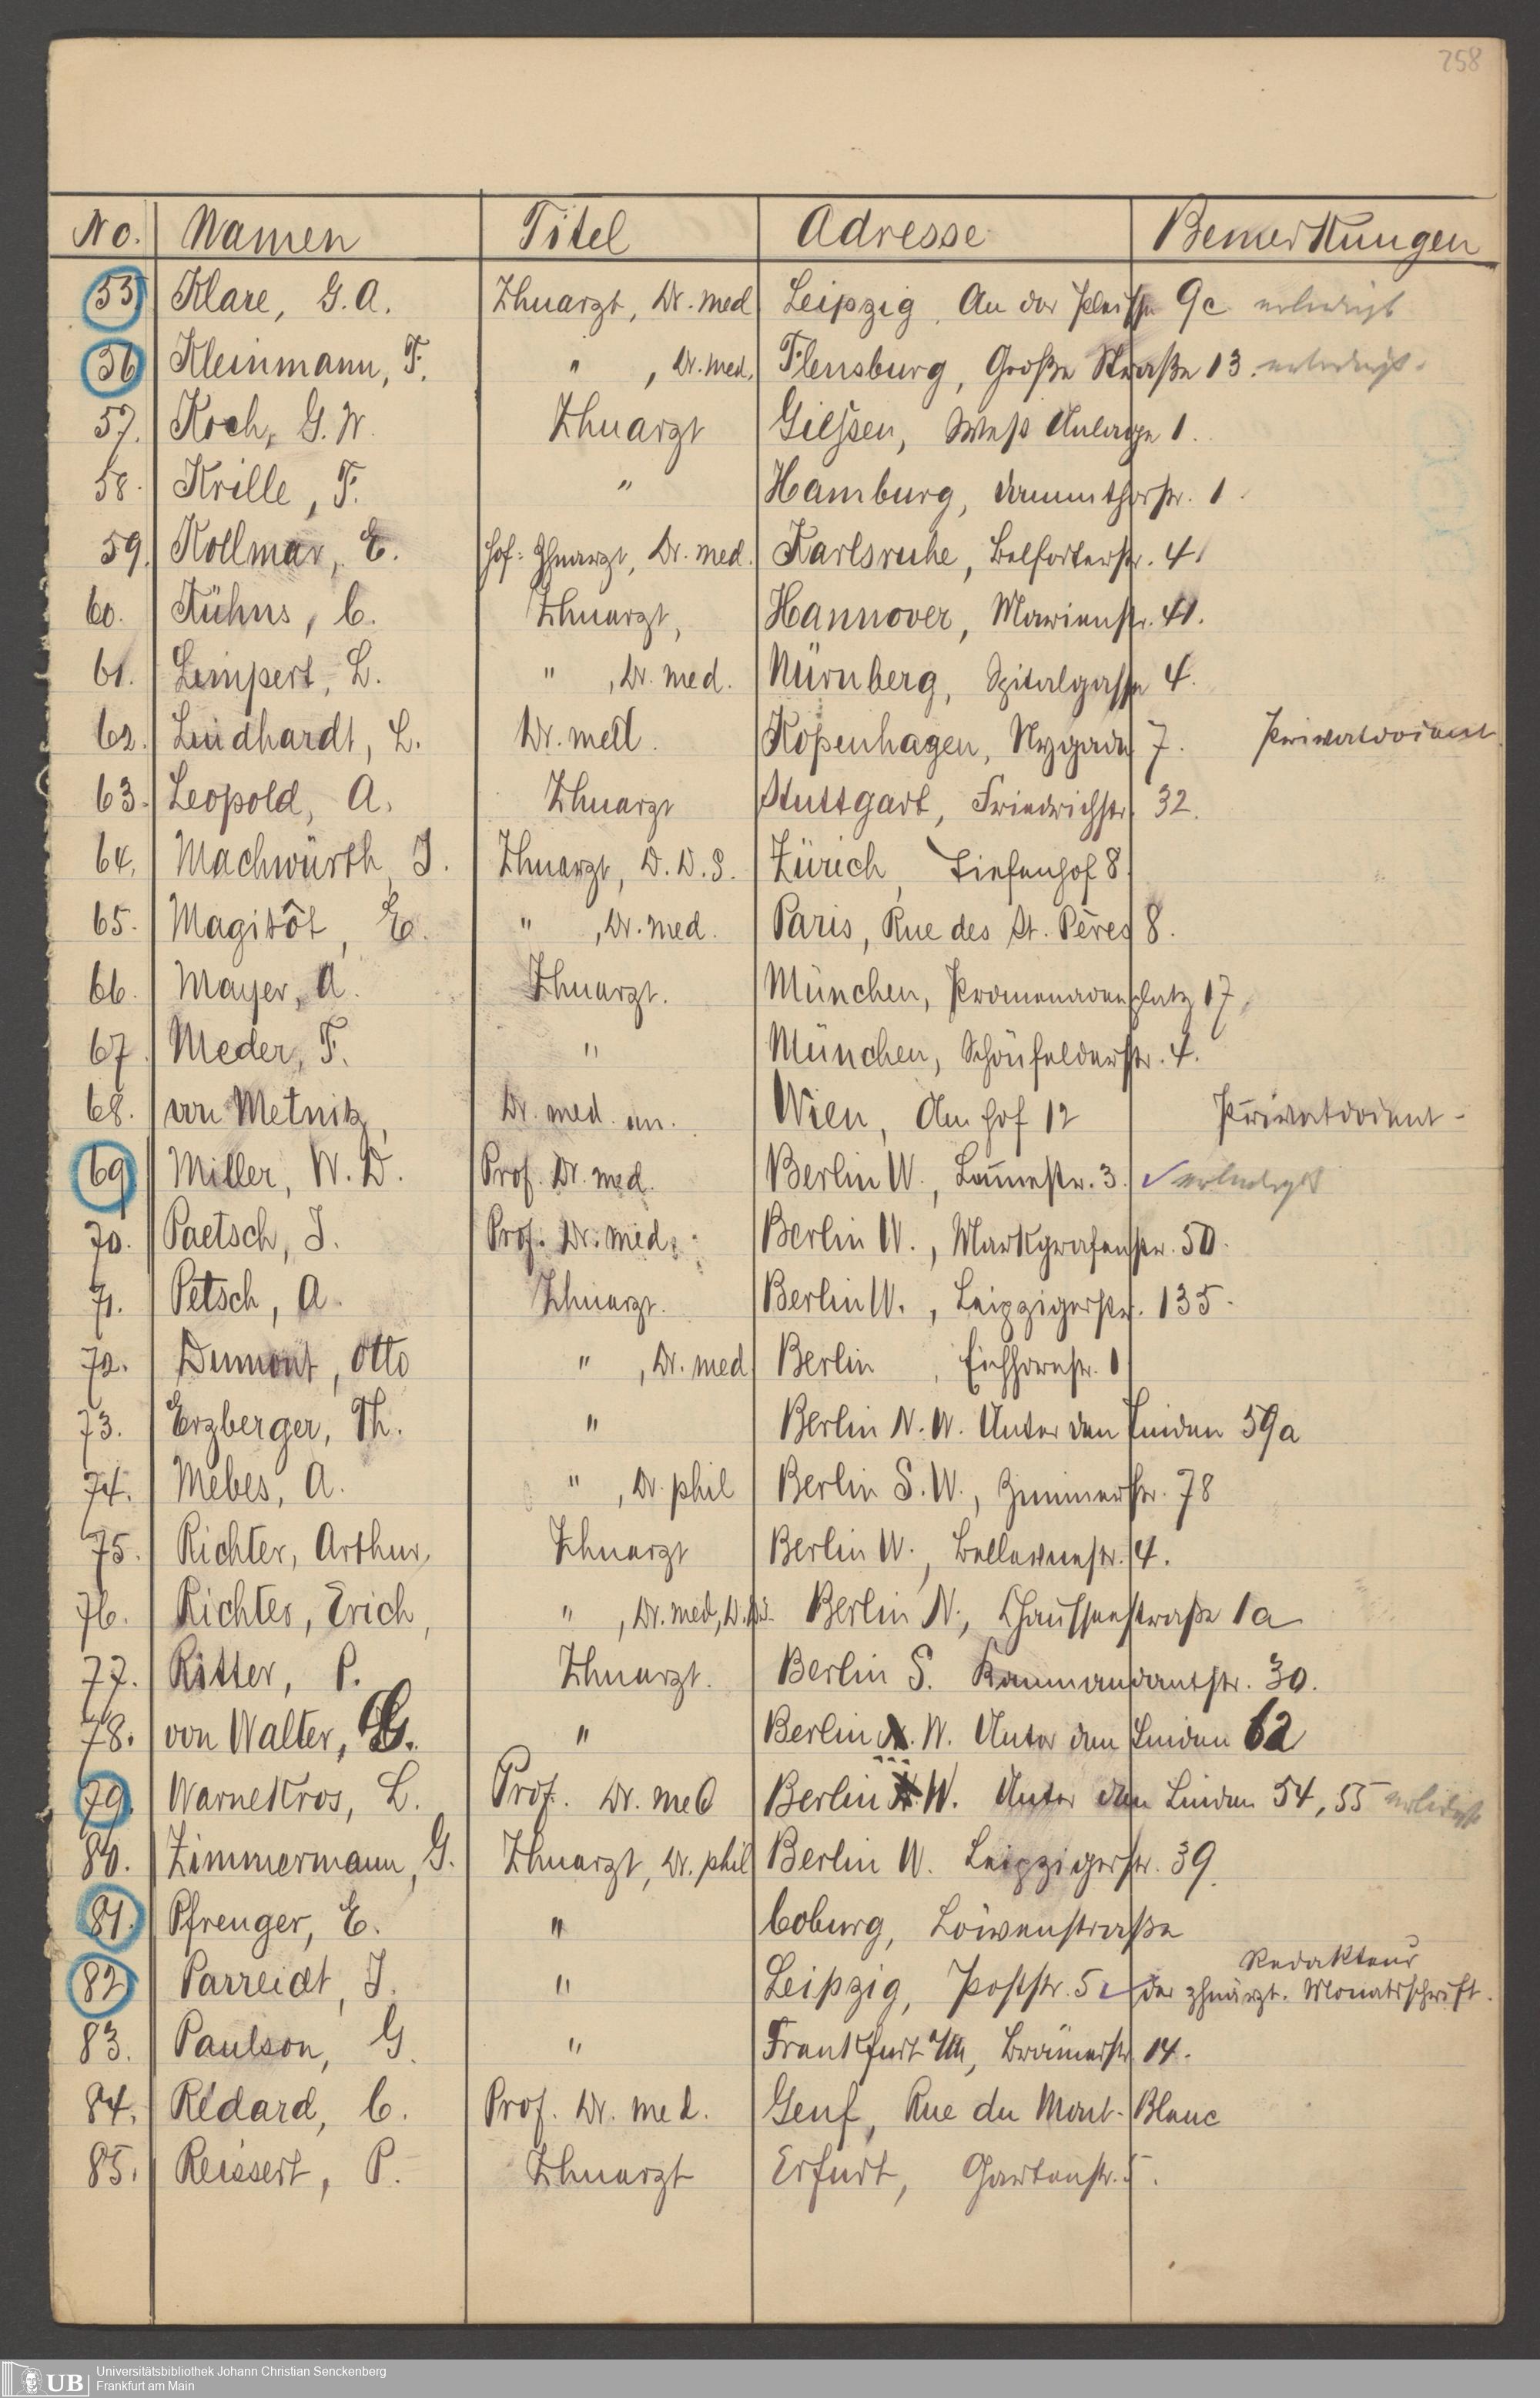 258
No. Namen Titel Adresse Bemerkungen
55 Klare, G. A. Zhnarzt, Dr. med Leipzig, An der Pleisse 9c erledigt
56 Kleinmann, F. " , Dr. med. Flensburg, Große Straße 13. erledigt.
57. Koch, G. W. Zhnarzt Giessen, West Anlage 1.
58. Krille, F. " Hamburg, Dammthorstr. 1.
59. Kollmar, E. Hof-Zhnarzt, Dr. med. Karlsruhe, Belforterstr. 4.
60. Kühns, C. Zhnarzt, Hannover, Marienstr. 41.
61. Limpert, L. " , Dr. med. Nürnberg, Spitalgasse 4.
62. Lindhardt, L. Dr. med. Kopenhagen, Nygade 7. Privatdocent
63. Leopold, A. Zhnarzt Stuttgart, Friedrichstr. 32.
64. Machwürth, J. Zhnarzt, D. D. S. Zürich, Tiefenhof 8.
65. Magitôt, E. " , Dr. med. Paris, Rue des St. Pères 8.
66. Mayer, A. Zhnarzt. München, Promenadenplatz 17.
67. Meder, F. " München, Schönfelderstr. 4.
68. von Metnitz, Dr. med. un. Wien, Am Hof 12 Privatdocent -
69 Miller, W. D. Prof. Dr. med. Berlin W., Lennestr. 3. ✓ erledigt
70. Paetsch, J. Prof. Dr. med. Berlin W., Markgrafenstr. 50.
71. Petsch, A. Zhnarzt. Berlin W., Leipzigerstr. 135.
72. Dumont, Otto " , Dr. med Berlin, Eichhornstr. 1
73. Erzberger, Th. " Berlin N. W. Unter den Linden 59a
74. Mebes, A. " , Dr. phil Berlin S. W., Zimmerstr. 78
75. Richter, Arthur, Zhnarzt Berlin W., Bellevuestr. 4.
76. Richter, Erich, " , Dr. med, D.D.S. Berlin N., Chausseestraße 1a
77. Ritter, P. Zhnarzt. Berlin S. Kommandantstr. 30.
78. von Walter, G. " Berlin W. Unter den Linden 62
79. Warnekros, L. Prof. Dr. med Berlin W. Unter den Linden 54, 55 erledigt
80. Zimmermann, G. Zhnarzt, Dr. phil Berlin W. Leipzigerstr. 39.
81. Pfrenger, E. " Coburg, Löwenstraße
82 Parreidt, J. " Leipzig, Poststr. 5 ✓ Redakteur
der zhnärzt. Monatsschrift.
83. Paulson, G. " Frankfurt a/M, 14.
84. Rédard, C. Prof. Dr. med. Genf, Rue du Mont-Blanc
85. Reissert, P. Zhnarzt Erfurt, Gartenstr. 5.
UB Universitätsbibliothek Johann Christian Senckenberg
Frankfurt am Main